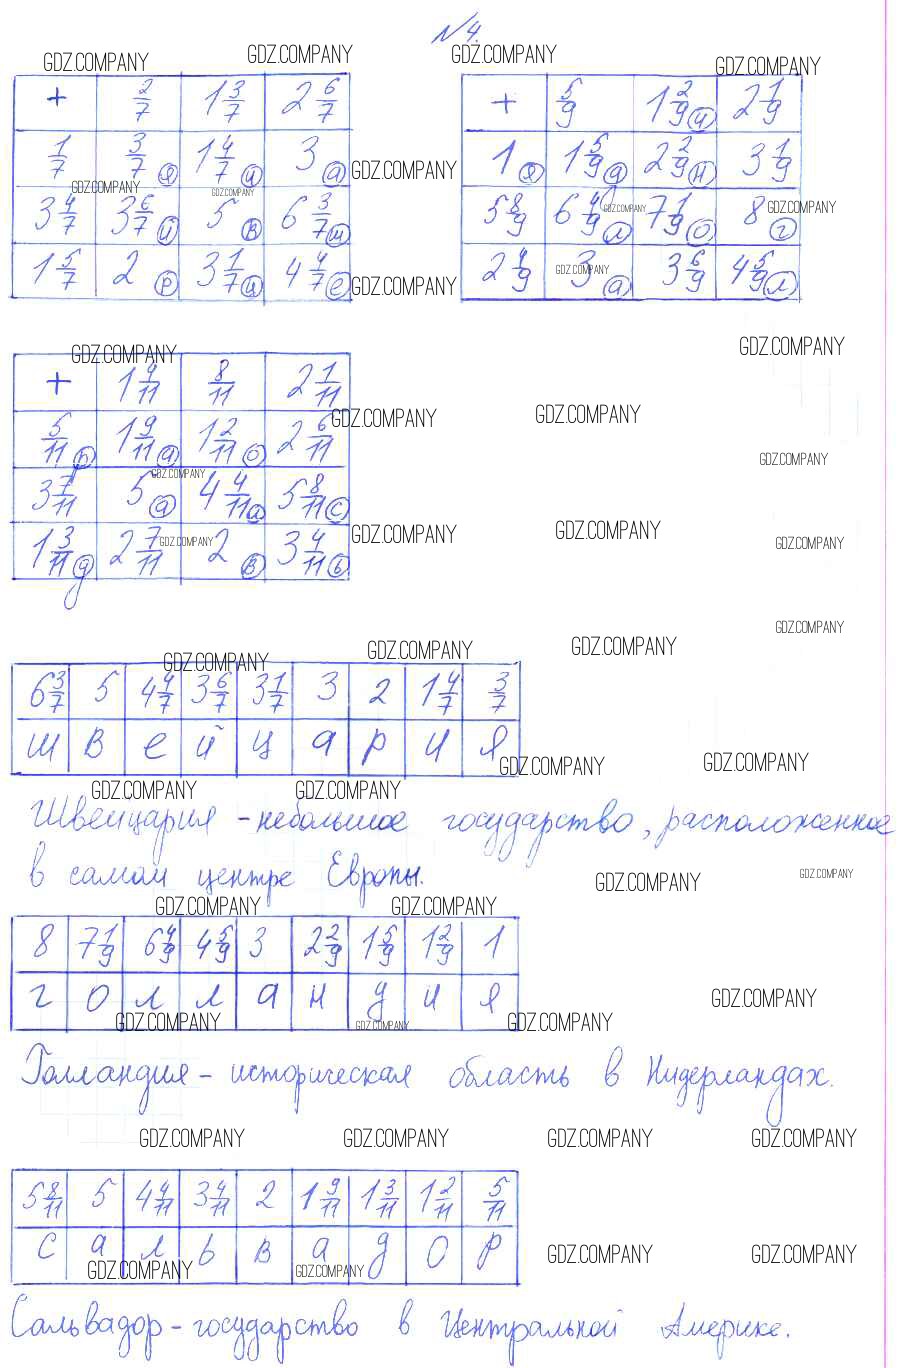 №4.
+ 2/7 1 3/7 2 6/7
1/7 3/7 я 1 4/7 и 3 а
3 4/7 3 6/7 й 5 в 6 3/7 ш
1 5/7 2 р 3 1/7 ц 4 4/7 е
+ 5/9 1 2/9 и 2 1/9
1 я 1 5/9 д 2 2/9 н 3 1/9
5 8/9 6 4/9 л 7 1/9 о 8 г
2 4/9 3 а 3 6/9 4 5/9 л
+ 1 4/11 8/11 2 1/11
5/11 р 1 9/11 а 1 2/11 о 2 6/11
3 7/11 5 а 4 4/11 л 5 8/11 с
1 3/11 д 2 7/11 2 в 3 4/11 ь
6 3/7 5 4 4/7 3 6/7 3 1/7 3 2 1 4/7 3/7
ш в е й ц а р и я
Швейцария - небольшое государство, расположенное
в самом центре Европы.
8 7 1/9 6 4/9 4 5/9 3 2 2/9 1 5/9 1 2/9 1
г о л л а н д и я
Голландия - историческая область в Нидерландах.
5 8/11 5 4 4/11 3 4/11 2 1 9/11 1 3/11 1 2/11 5/11
с а л ь в а д о р
Сальвадор - государство в Центральной Америке.
GDZ.COMPANY